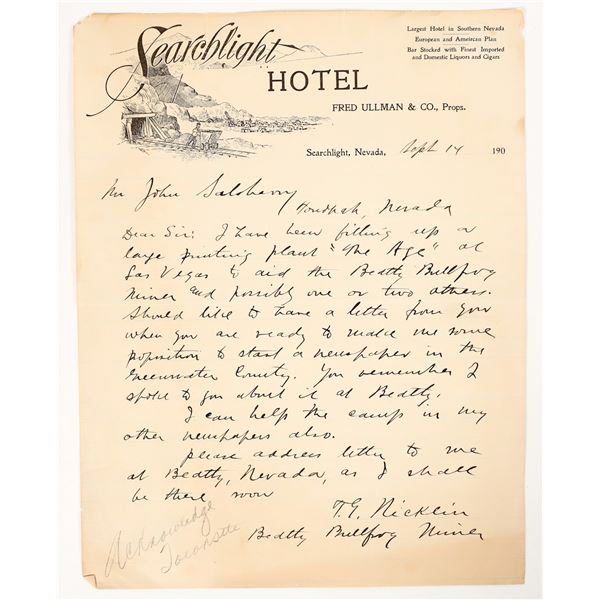 Searchlight
HOTEL
Largest Hotel in Southern Nevada
European and American Plan
Bar Stocked with Finest Imported
and Domestic Liquors and Cigars
FRED ULLMAN & CO., Props.
Searchlight, Nevada, Sept 14 190
Mr John Salsberry
Nevada
Dear Sir: I have been fitting up a
large printing plant "The Age" at
Las Vegas to aid the Beatty Bullfrog
Miner and possibly one or two others.
Should like to have a letter from you
when you are ready to make me some
proposition to start a newspaper in the
Greenwater County. You remember I
spoke to you about it at Beatty.
I can help the camp in my
other newspapers also.
Please address letter to me
at Beatty, Nevada, as I shall
be there soon
T.G. Nicklin
Beatty Bullfrog Miner
Acknowledge